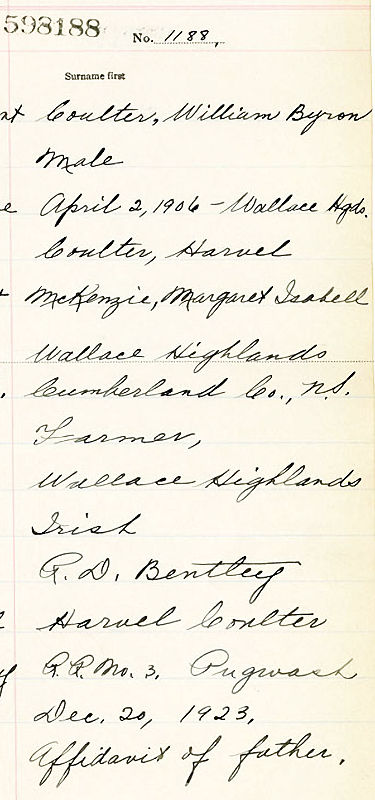 598188
No. 1188,
Surname first
Coulter, William Byron
Male
April 2, 1906 - Wallace Hgds.
Coulter, Harvel
McKenzie, Margaret Isabell
Wallace Highlands
Cumberland Co., N.S.
Farmer,
Wallace Highlands
Irish
R. D. Bentley
Harvel Coulter
R.R. No. 3, Pugwash
Dec. 20, 1923.
Affidavit of father.